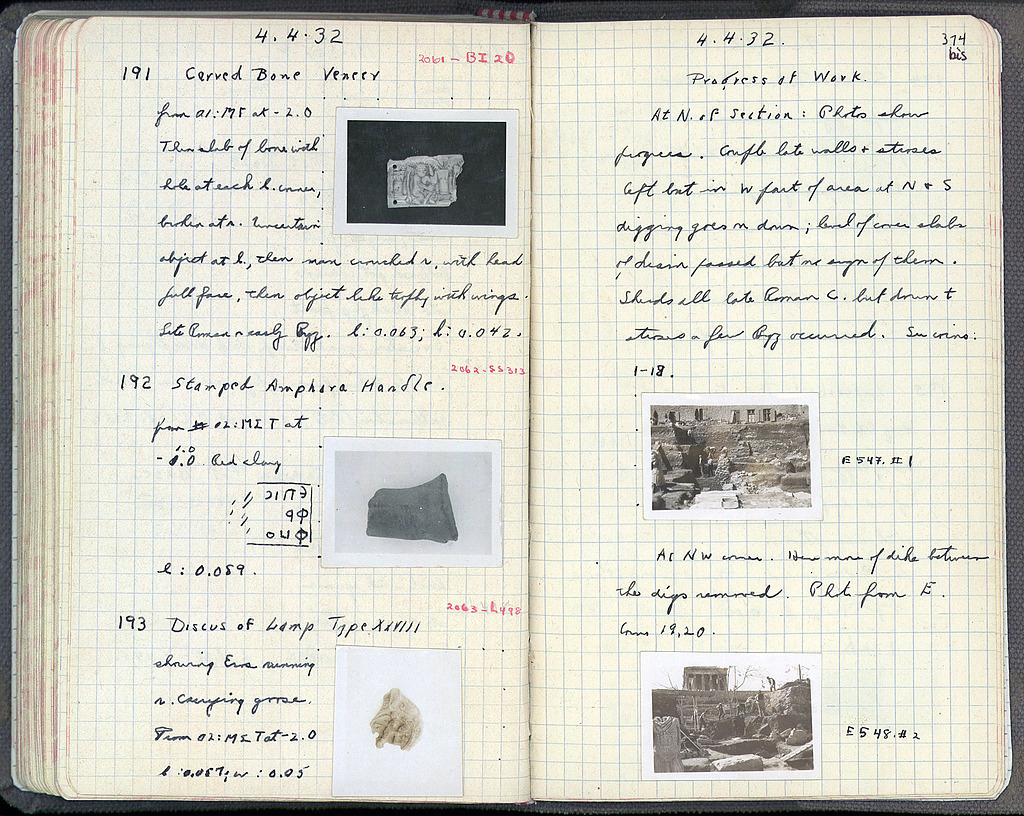 4.4.32
2061 - BI 20
191 Carved Bone Veneer
from 01:ΜΓ at -2.0
Thin slab of bone with
hole at each l. corner,
broken at r. Uncertain
object at l., then man crouched r, with head
full face, then object like trophy with wings.
Late Roman or early Byz. l: 0.063; h: 0.042.
2062-SS313
192 Stamped Amphora Handle.
from 02:ΜΣΤ at
-1.0 Red clay
l: 0.089.
2063-L498
193 Discus of Lamp Type XXVIII
showing Eros running
r. carrying goose.
From 02:ΜΣΤ at -2.0
l: 0.067; w: 0.05
4.4.32.
374
bis
Progress of Work.
At N. of Section: Photos show
progress. Couple late walls &
left but in W part of area at N & S
digging goes on down; level of cover slabs
of drain passed but no sign of them.
Sherds all late Roman C. but down
a few Byz occurred. See coins:
1-18.
E 547. #1
At NW corner. Here more of dike between
the digs removed. Photo from E.
Coins 19,20.
E 548. #2